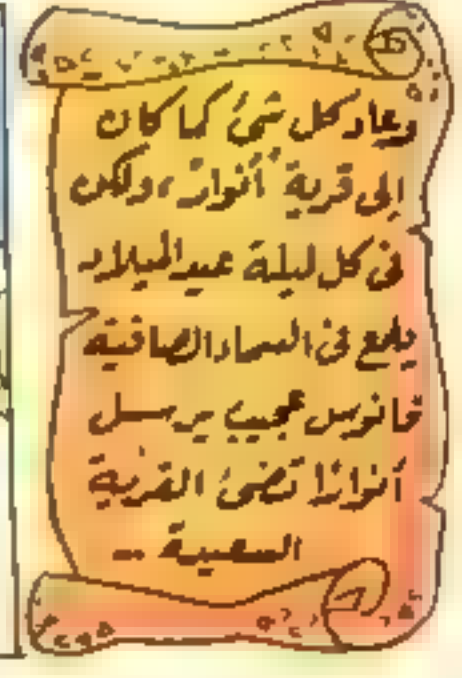 وعاد كل شئ كما كان
إلى قرية "أنوار"، ولكن
فى كل ليلة عيد الميلاد
يلمع فى السماء الصافية
فانوس عجيب يرسل
أنوارًا تضئ القرية
السعيدة ..